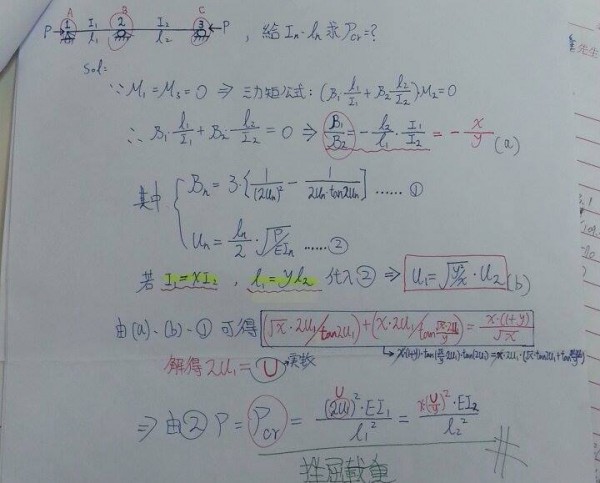 A B C
P→ 1 I₁ 2 I₂ 3 ←P , 給 Iₙ、lₙ 求 Pcr=?
l₁ l₂
Sol:
∵ M₁=M₃=0 ⇒ 三力矩公式: (B₁·l₁/I₁+B₂·l₂/I₂)·M₂=0
∴ B₁·l₁/I₁+B₂·l₂/I₂=0 ⇒ B₁/B₂=-l₂/l₁·I₁/I₂=-x/y (a)
其中 { Bₙ=3·[1/(2uₙ)²-1/(2uₙ·tan2uₙ)] ……①
Uₙ=lₙ/2·√(P/EIₙ) ……②
若 I₁=xI₂ , l₁=yl₂ 代入② ⇒ U₁=√(y²/x)·U₂ (b)
由(a)、(b)、① 可得 (√x·2u₁/tan2u₁)+(x·2u₁/tan(√x·2u₁/y))=x·(1+y)/√x
解得 2u₁=U 實數
⇒ 由② P=Pcr=(2u₁)²·EI₁/l₁²=x(U/y)²·EI₂/l₂²
U
挫屈載重